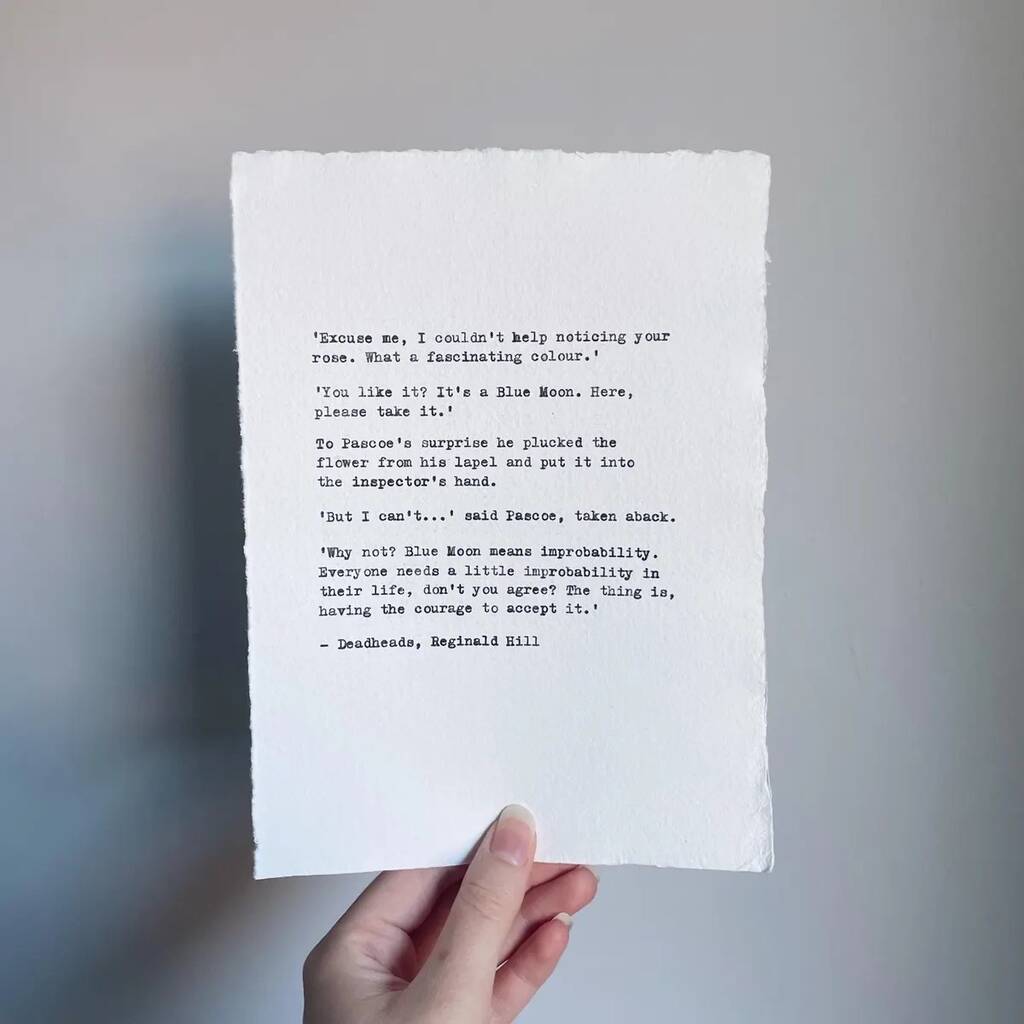 'Excuse me, I couldn't help noticing your
rose. What a fascinating colour.'
'You like it? It's a Blue Moon. Here,
please take it.'
To Pascoe's surprise he plucked the
flower from his lapel and put it into
the inspector's hand.
'But I can't...' said Pascoe, taken aback.
'Why not? Blue Moon means improbability.
Everyone needs a little improbability in
their life, don't you agree? The thing is,
having the courage to accept it.'
– Deadheads, Reginald Hill